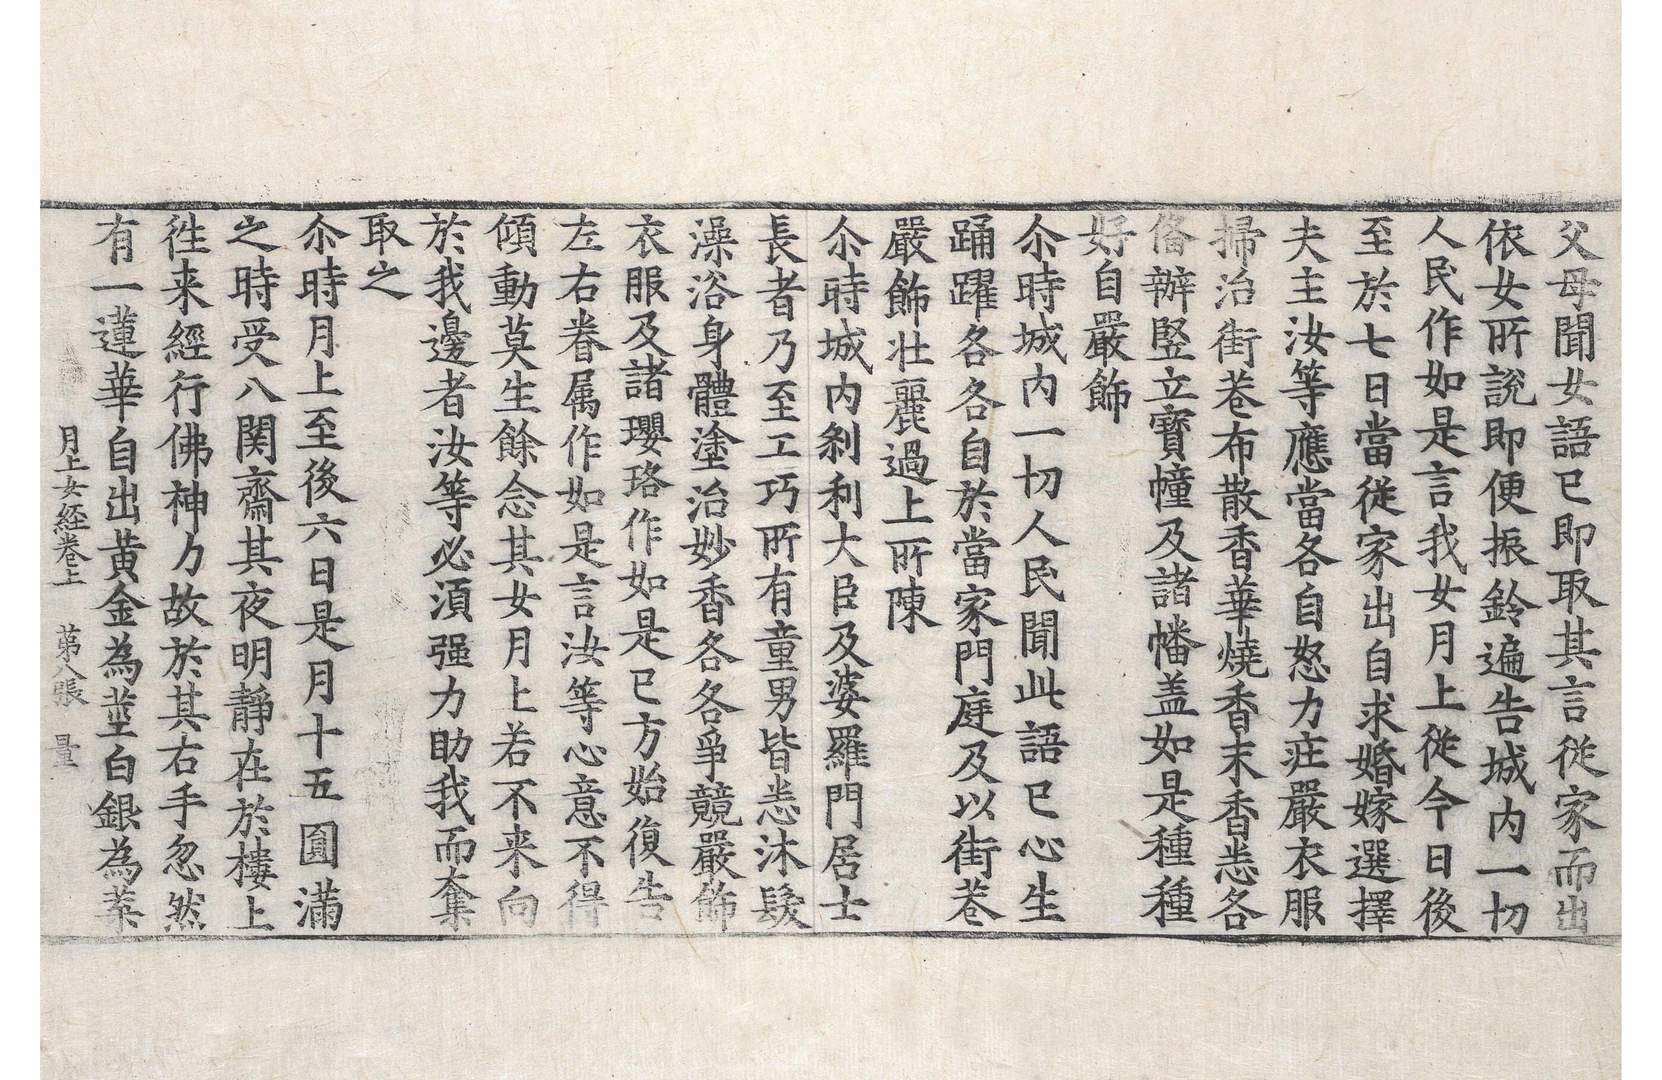 父母聞女語已即取其言従家而出
依女所說即便振鈴遍告城内一切
人民作如是言我女月上従今日後
至於七日當従家出自求婚嫁選擇
夫主汝等應當各自怒力庄嚴衣服
掃治街巷布散香華燒香末香悉各
偹辦竪立寶幢及諸幡盖如是種種
好自嚴飾
尒時城内一切人民聞此語已心生
踊躍各各自於當家門庭及以街巷
嚴飾壮麗過上所陳
尒時城内刹利大臣及婆羅門居士
長者乃至工巧所有童男皆悉沐髮
澡浴身體塗治妙香各各爭競嚴飾
衣服及諸瓔珞作如是已方始復告
左右眷属作如是言汝等心意不得
傾動莫生餘念其女月上若不来向
於我邊者汝等必須强力助我而奪
取之
尒時月上至後六日是月十五圓滿
之時受八関齋其夜明静在於樓上
徃来經行佛神力故於其右手忽然
有一蓮華自出黃金為莖白銀為葉
月上女経巻上　苐八張　量